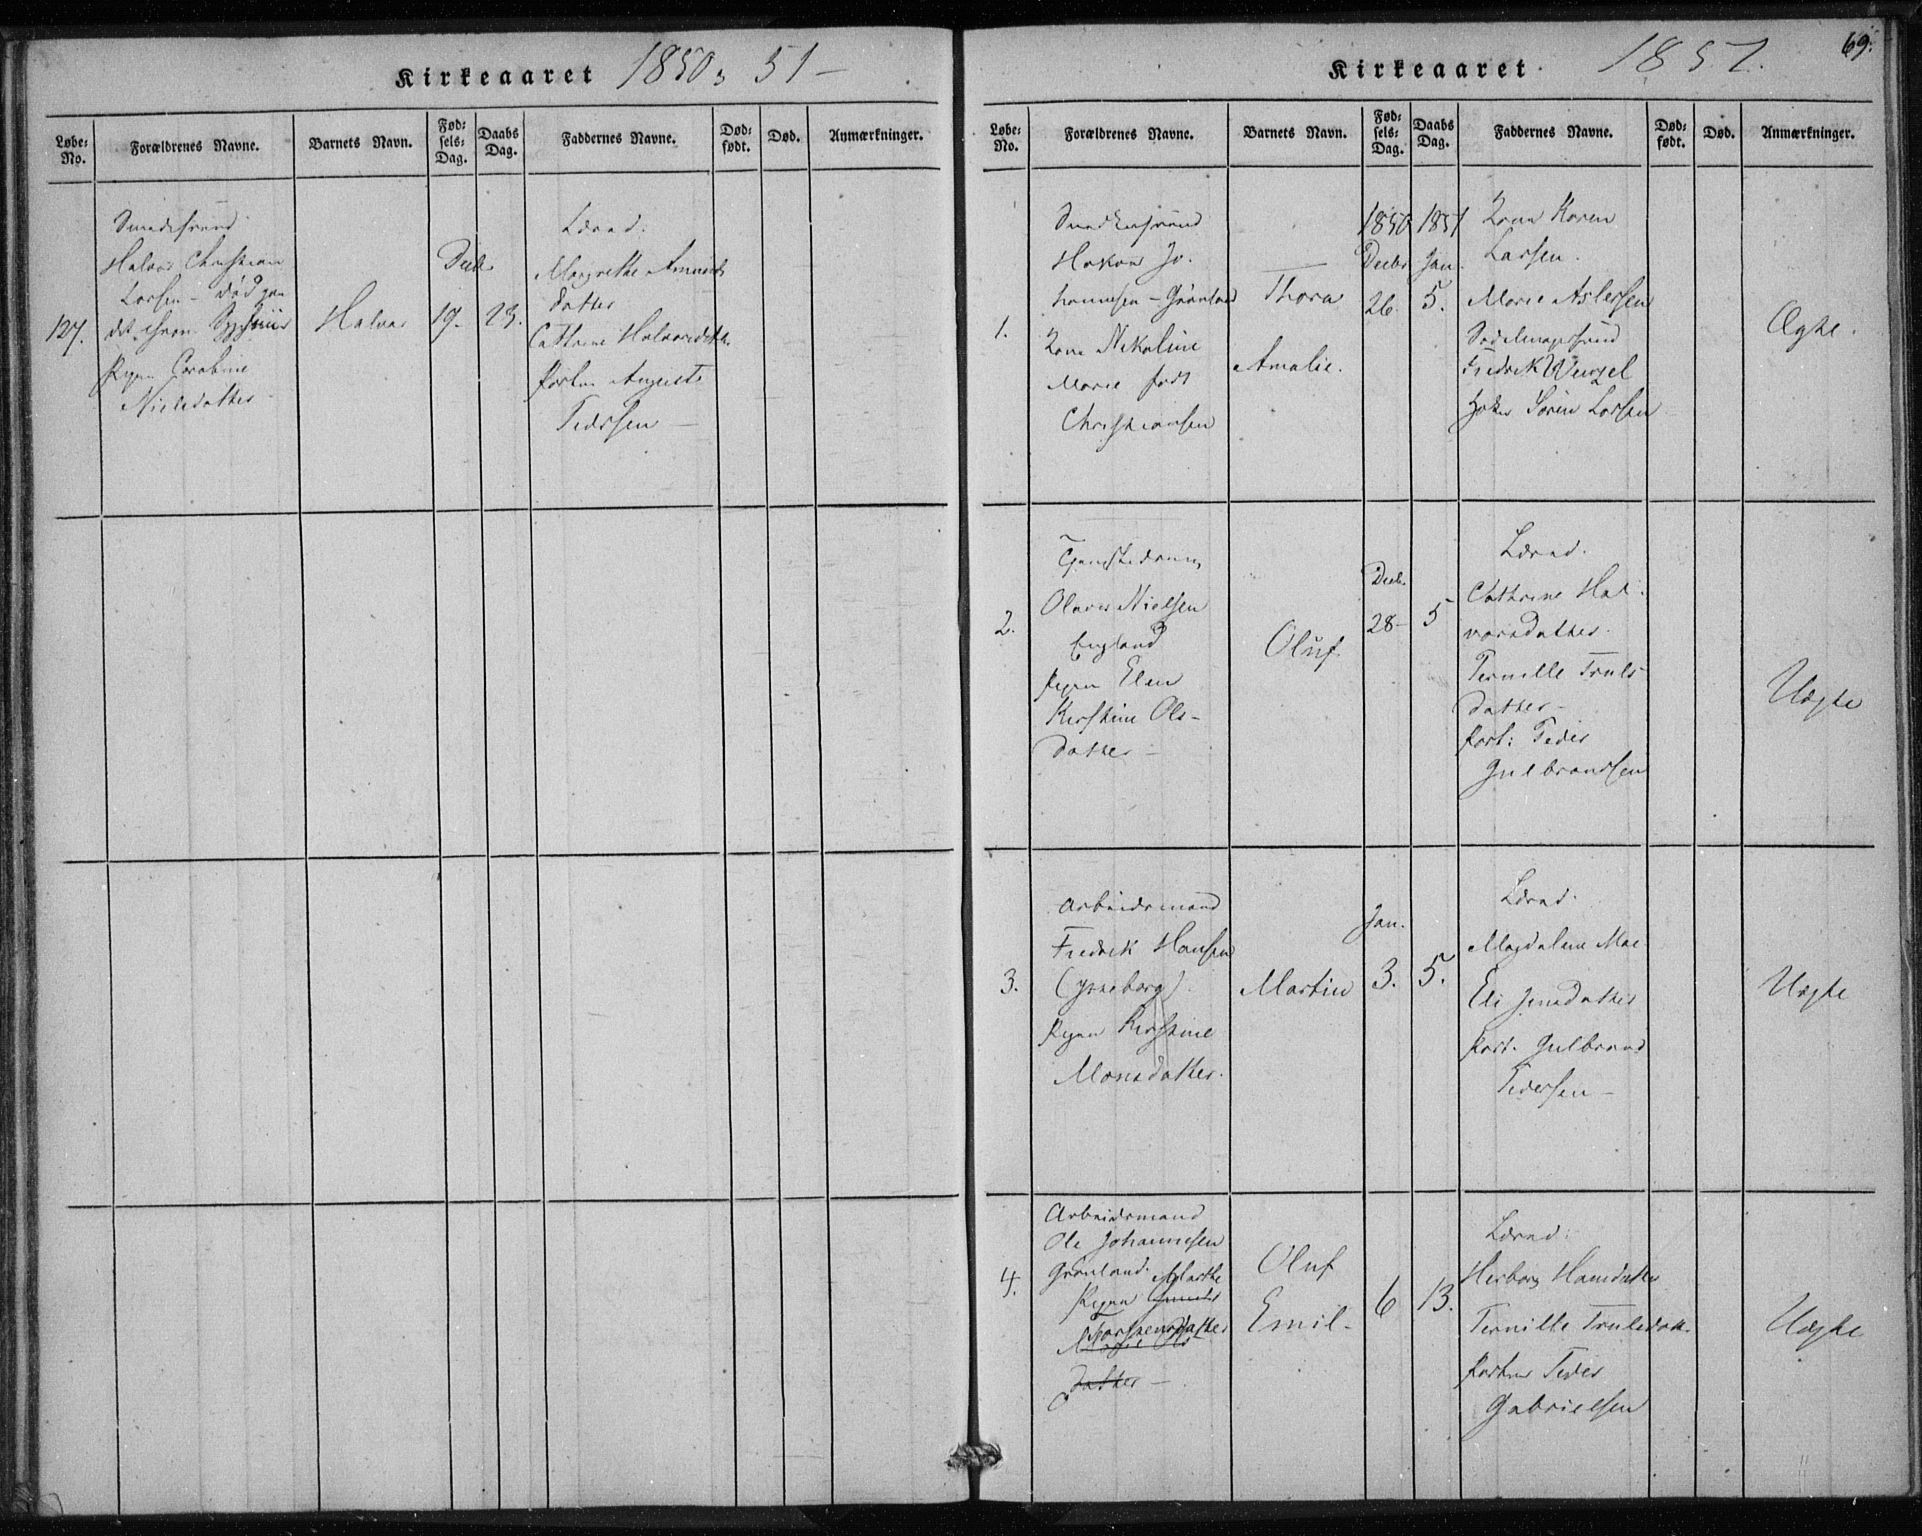 Kirkeaaret 1850 51 —
Løbe: No.
Forældrenes Navne.
Barnets Navn.
Fød: sels: Dag.
Daabs Dag.
Faddernes Navne.
Død: født.
Død.
Anmærkninger.
127.
Smedesvend
Halvor Christian
Larsen - død paa
Pigen
Nielsdatter
Halvor
Decb
19.
23.
Lærred.
Margrethe Amunds
datter
Cathrine Halvorsdatter
Portner August
Pedersen —
69.
Kirkeaaret 1851.
Løbe: No.
Forældrenes Navne.
Barnets Navn.
Fød: sels: Dag.
Daabs Dag.
Faddernes Navne.
Død: født.
Død.
Anmærkninger.
1.
Hakon Jo.
hannesen - Grønland
Kone Nikoline
Marie født
Christiansen
Thora
Amalie.
1850
Decbr
26
1851
Jan.
5.
Kone Karen
Larsen.
Marie Aslersen
Sadelmagersvend
Fredrik Wenzel
Søren Larsen
Ægte.
2.
Tjenestedreng
Olaves Nielsen
England
Pigen Elen
Kirstine Ols-
datter —
Oluf
Decb.
28-
5
Lærred.
Cathrine Hal-
vorsdatter.
Pernille Truls
datter -
Port: Peder
Gulbrandsen
Uægte
3.
Arbeidsmand
Fredrik Hansen
Pigen Kirstine
Monsdatter.
Martin
Jan.
3.
5.
Lærred.
Magdalene Moe
Eli Jensdatter
Port. Gulbrand
Pedersen —
Uægte
4.
Arbeidsmand
Ole Johannesen
Grønland. Marthe
Pigen
Torstensdatter
datter —
Oluf
Emil-
6
13.
Lærred.
Herborg Hansdatter
Pernille Trulsdatt.
Portner Peder
Gabrielsen
Uægte